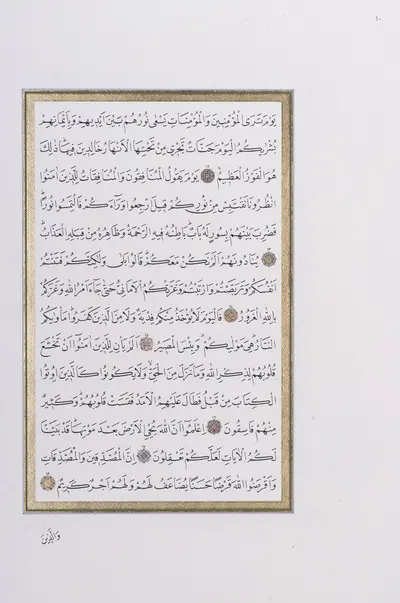 ١٠
يَوْمَ تَرَى الْمُؤْمِنِينَ وَالْمُؤْمِنَاتِ يَسْعَى نُورُهُمْ بَيْنَ اَيْدِيهِمْ وَبِاَيْمَانِهِمْ
بُشْرٰيكُمُ الْيَوْمَ جَنَّاتٌ تَجْرِى مِنْ تَحْتِهَا الْاَنْهَارُ خَالِدِينَ فِيهَا ذٰلِكَ
هُوَ الْفَوْزُ الْعَظِيمُ يَوْمَ يَقُولُ الْمُنَافِقُونَ وَالْمُنَافِقَاتُ لِلَّذِينَ اٰمَنُوا
انْظُرُونَا نَقْتَبِسْ مِنْ نُورِكُمْ قِيلَ ارْجِعُوا وَرَاءَكُمْ فَالْتَمِسُوا نُورًا
فَضُرِبَ بَيْنَهُمْ بِسُورٍ لَهُ بَابٌ بَاطِنُهُ فِيهِ الرَّحْمَةُ وَظَاهِرُهُ مِنْ قِبَلِهِ الْعَذَابُ
يُنَادُونَهُمْ اَلَمْ نَكُنْ مَعَكُمْ قَالُوا بَلٰى وَلٰكِنَّكُمْ فَتَنْتُمْ
اَنْفُسَكُمْ وَتَرَبَّصْتُمْ وَارْتَبْتُمْ وَغَرَّتْكُمُ الْاَمَانِىُّ حَتّٰى جَاءَ اَمْرُ اللهِ وَغَرَّكُمْ
بِاللهِ الْغَرُورُ فَالْيَوْمَ لَا يُؤْخَذُ مِنْكُمْ فِدْيَةٌ وَلَا مِنَ الَّذِينَ كَفَرُوا مَاْوٰيكُمُ
النَّارُ هِىَ مَوْلٰيكُمْ وَبِئْسَ الْمَصِيرُ اَلَمْ يَاْنِ لِلَّذِينَ اٰمَنُوا اَنْ تَخْشَعَ
قُلُوبُهُمْ لِذِكْرِ اللهِ وَمَا نَزَلَ مِنَ الْحَقِّ وَلَا يَكُونُوا كَالَّذِينَ اُوتُوا
الْكِتَابَ مِنْ قَبْلُ فَطَالَ عَلَيْهِمُ الْاَمَدُ فَقَسَتْ قُلُوبُهُمْ وَكَثِيرٌ
مِنْهُمْ فَاسِقُونَ اِعْلَمُوا اَنَّ اللهَ يُحْيِى الْاَرْضَ بَعْدَ مَوْتِهَا قَدْ بَيَّنَّا
لَكُمُ الْاٰيَاتِ لَعَلَّكُمْ تَعْقِلُونَ اِنَّ الْمُصَّدِّقِينَ وَالْمُصَّدِّقَاتِ
وَاَقْرَضُوا اللهَ قَرْضًا حَسَنًا يُضَاعَفُ لَهُمْ وَلَهُمْ اَجْرٌ كَرِيمٌ
وَالَّذِينَ